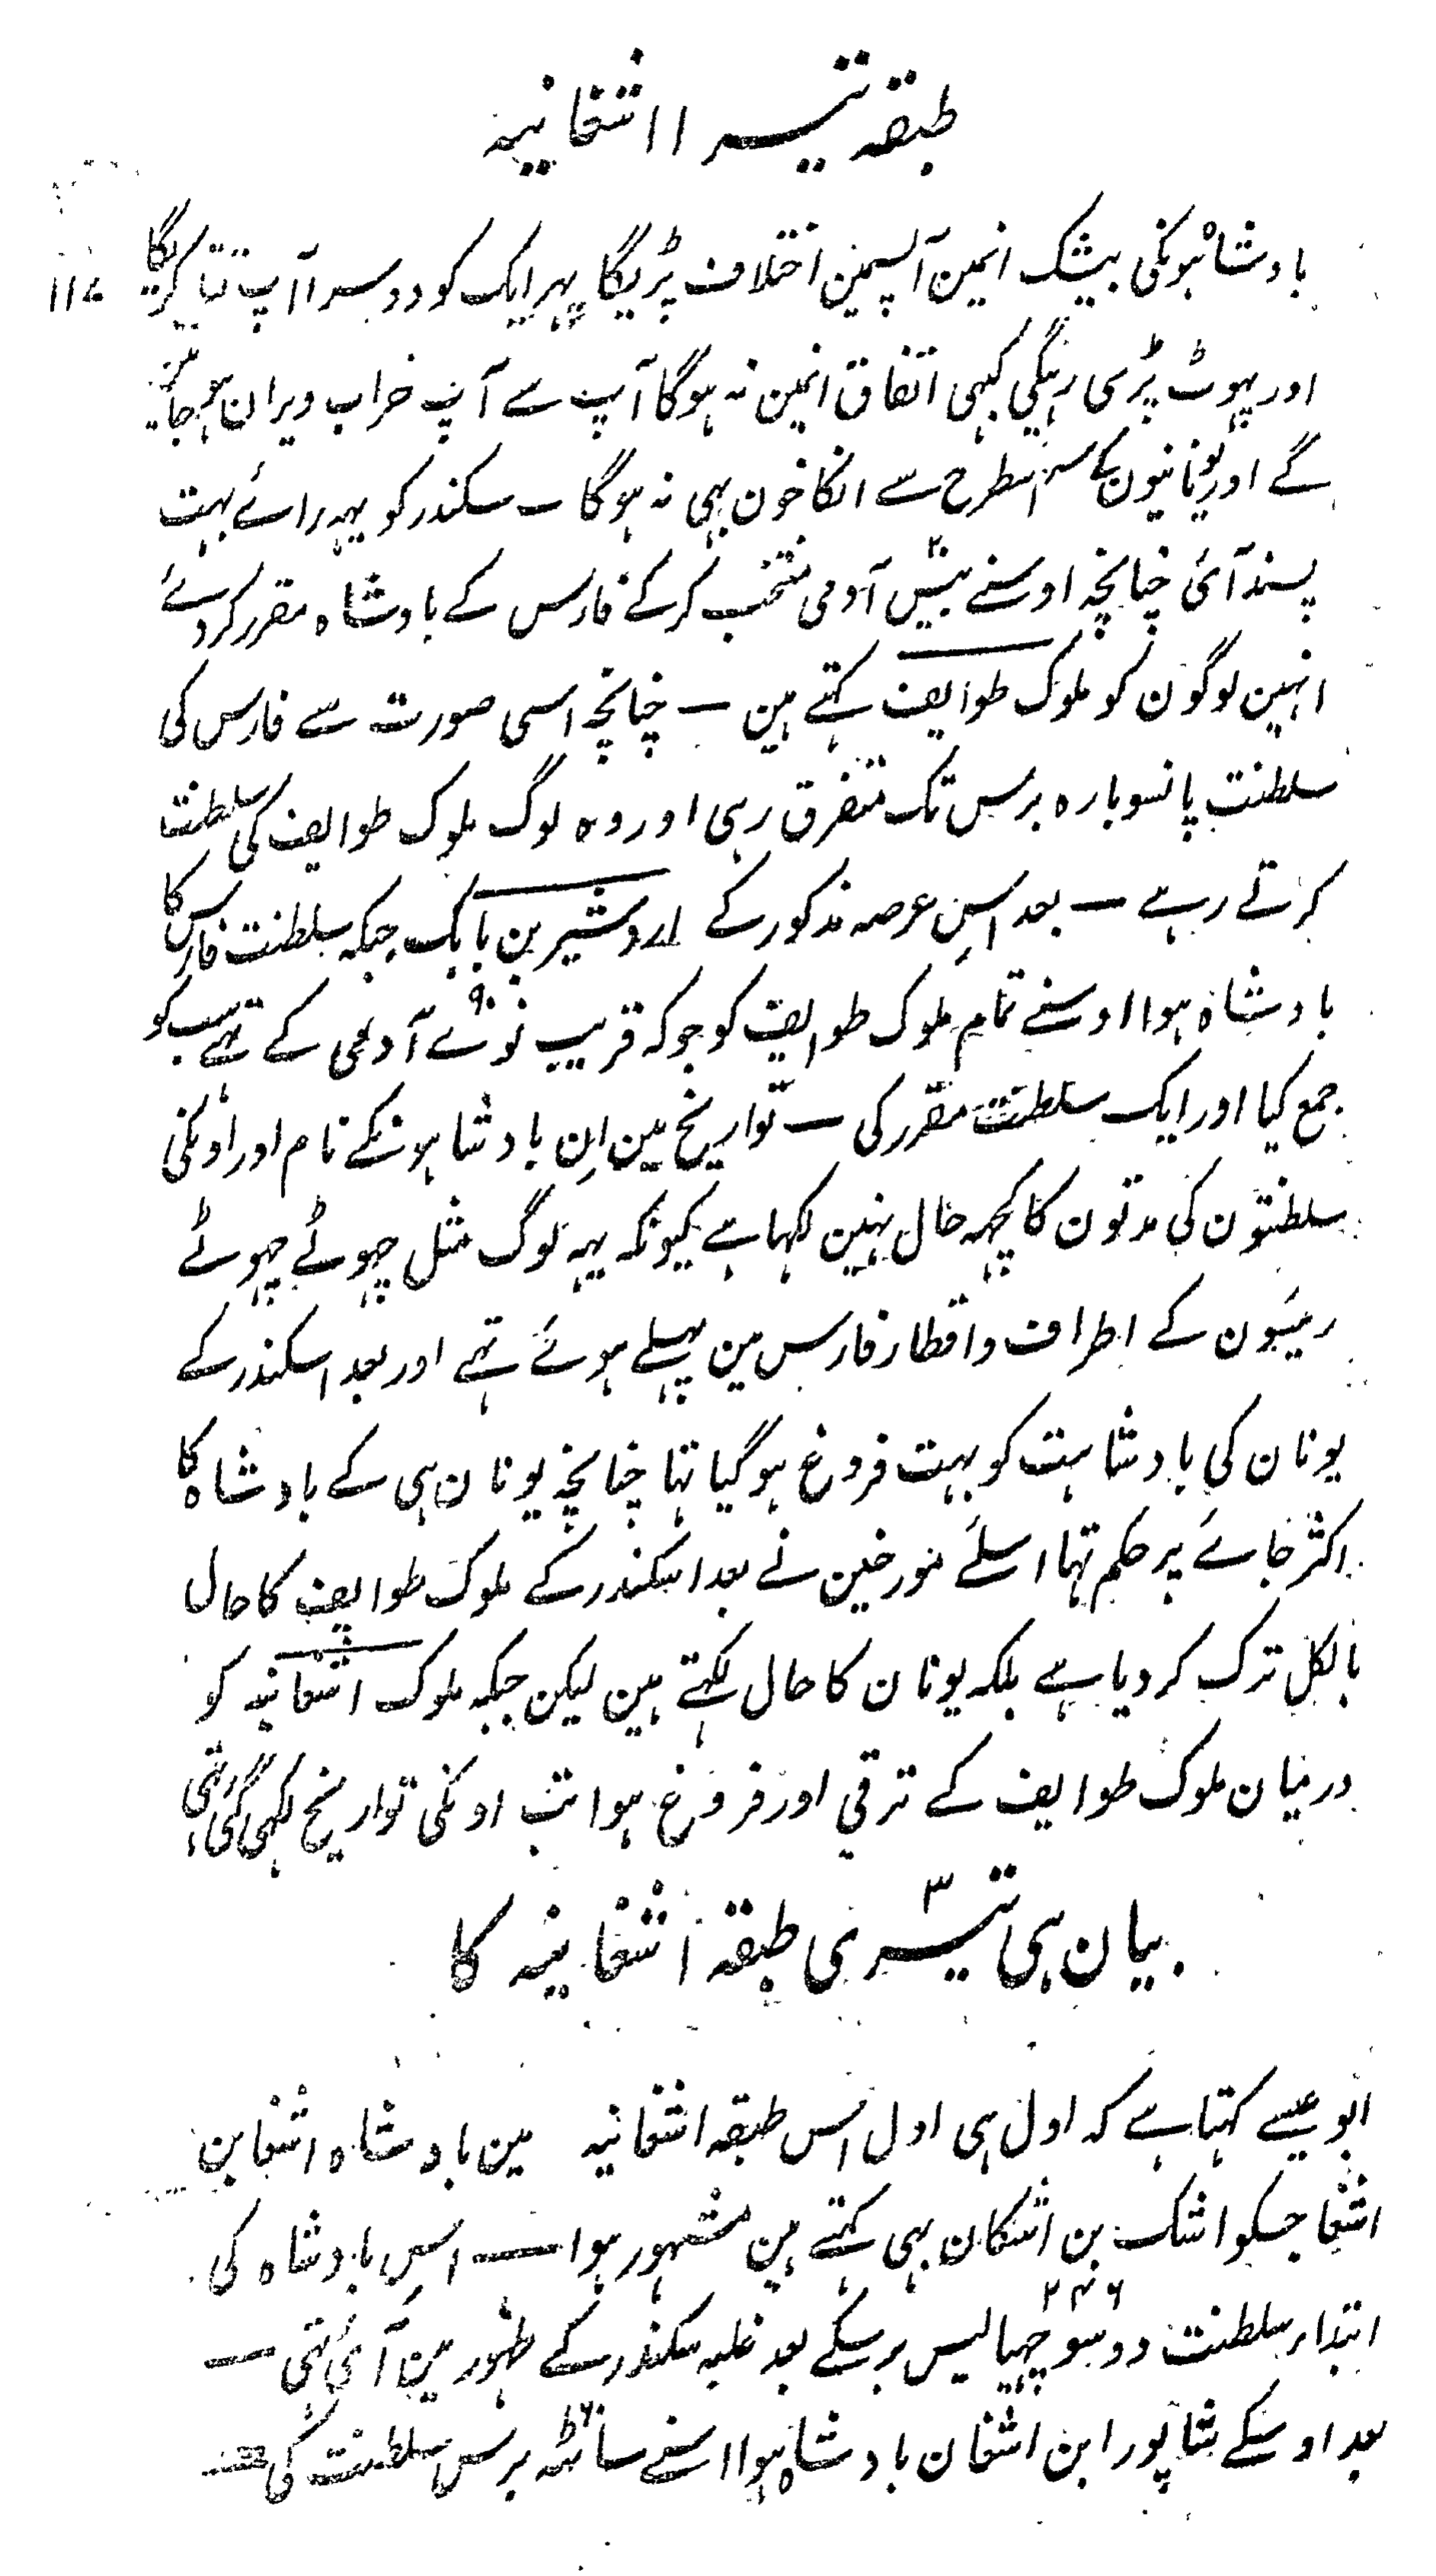 طبقہ تیسرا اشغانیہ
بادشاہونکی بیشک انمین آپسمین اختلاف پڑیگا پہر ایک کو دوسرا آپ تباکریگا
اور پہوٹ پڑی رہیگی کبہی اتفاق انمین نہ ہوگا آپ سے آپ خراب ویران ہوجاینگے
گے اور یونانیون کے سر اسطرح سے انکا خون بہی نہ ہوگا ــ سکندر کو یہہ رائے بہت
پسند آئی چنانچہ اوسنے بیس ۲۰ آدمی منتخب کرکے فارس کے بادشاہ مقرر کردئے
انہین لوگون کو ملوک طوایف کہتے ہین ــ چنانچہ اسی صورت سے فارس کی
سلطنت پانسو بارہ برس تک متفرق رہی اور وہ لوگ ملوک طوایف کی سلطنت
کرتے رہے ــ بعد اسِ عرصہ مذکور کے اردشیر بن بابک جبکہ سلطنت فارس کا
بادشاہ ہوا اوسنے تمام ملوک طوایف کو جوکہ قریب نوے ۹۰ آدمی کے تہے سب کو
جمع کیا اور ایک سلطنت مقرر کی ــ تواریخ مین اِن بادشاہونکے نام اور اونکی
سلطنتون کی مدتون کا کچہہ حال نہین لکہا ہے کیونکہ یہہ لوگ مثل چہوٹے چہوٹے
رئیسون کے اطراف و اقطار فارس مین پہیلے ہوئے تہے اور بعد اسکندر کے
یونان کی بادشاہت کو بہت فروغ ہوگیا تہا چنانچہ یونان ہی کے بادشاہ کا
اکثر جائے پر حکم تہا اسلئے مورخین نے بعد اسکندر کے ملوک طوایف کا حال
بالکل ترک کردیا ہے بلکہ یونان کا حال لکہتے ہین لیکن جبکہ ملوک اشغانیہ کو
درمیان ملوک طوایف کے ترقی اور فروغ ہوا تب اونکی تواریخ لکہی گئی تہی
بیان ہی تیسری ۳ طبقہ اشغانیہ کا
ابو عیسے کہتا ہے کہ اول ہی اول اس طبقہ اشغانیہ مین بادشاہ اشغا بن
اشغا جسکو اشک بن اشکان بہی کہتے ہین مشہور ہوا ــ اسِ بادشاہ کی
ابتداء سلطنت دوسو چہیالیس ۲۴۶ برسکے بعد غلبہ سکندر کے ظہور مین آئی تہی ــ
بعد اوسکے شاپور ابن اشغان بادشاہ ہوا اسنے ساٹہہ ۶۰ برس سلطنت کی ــ